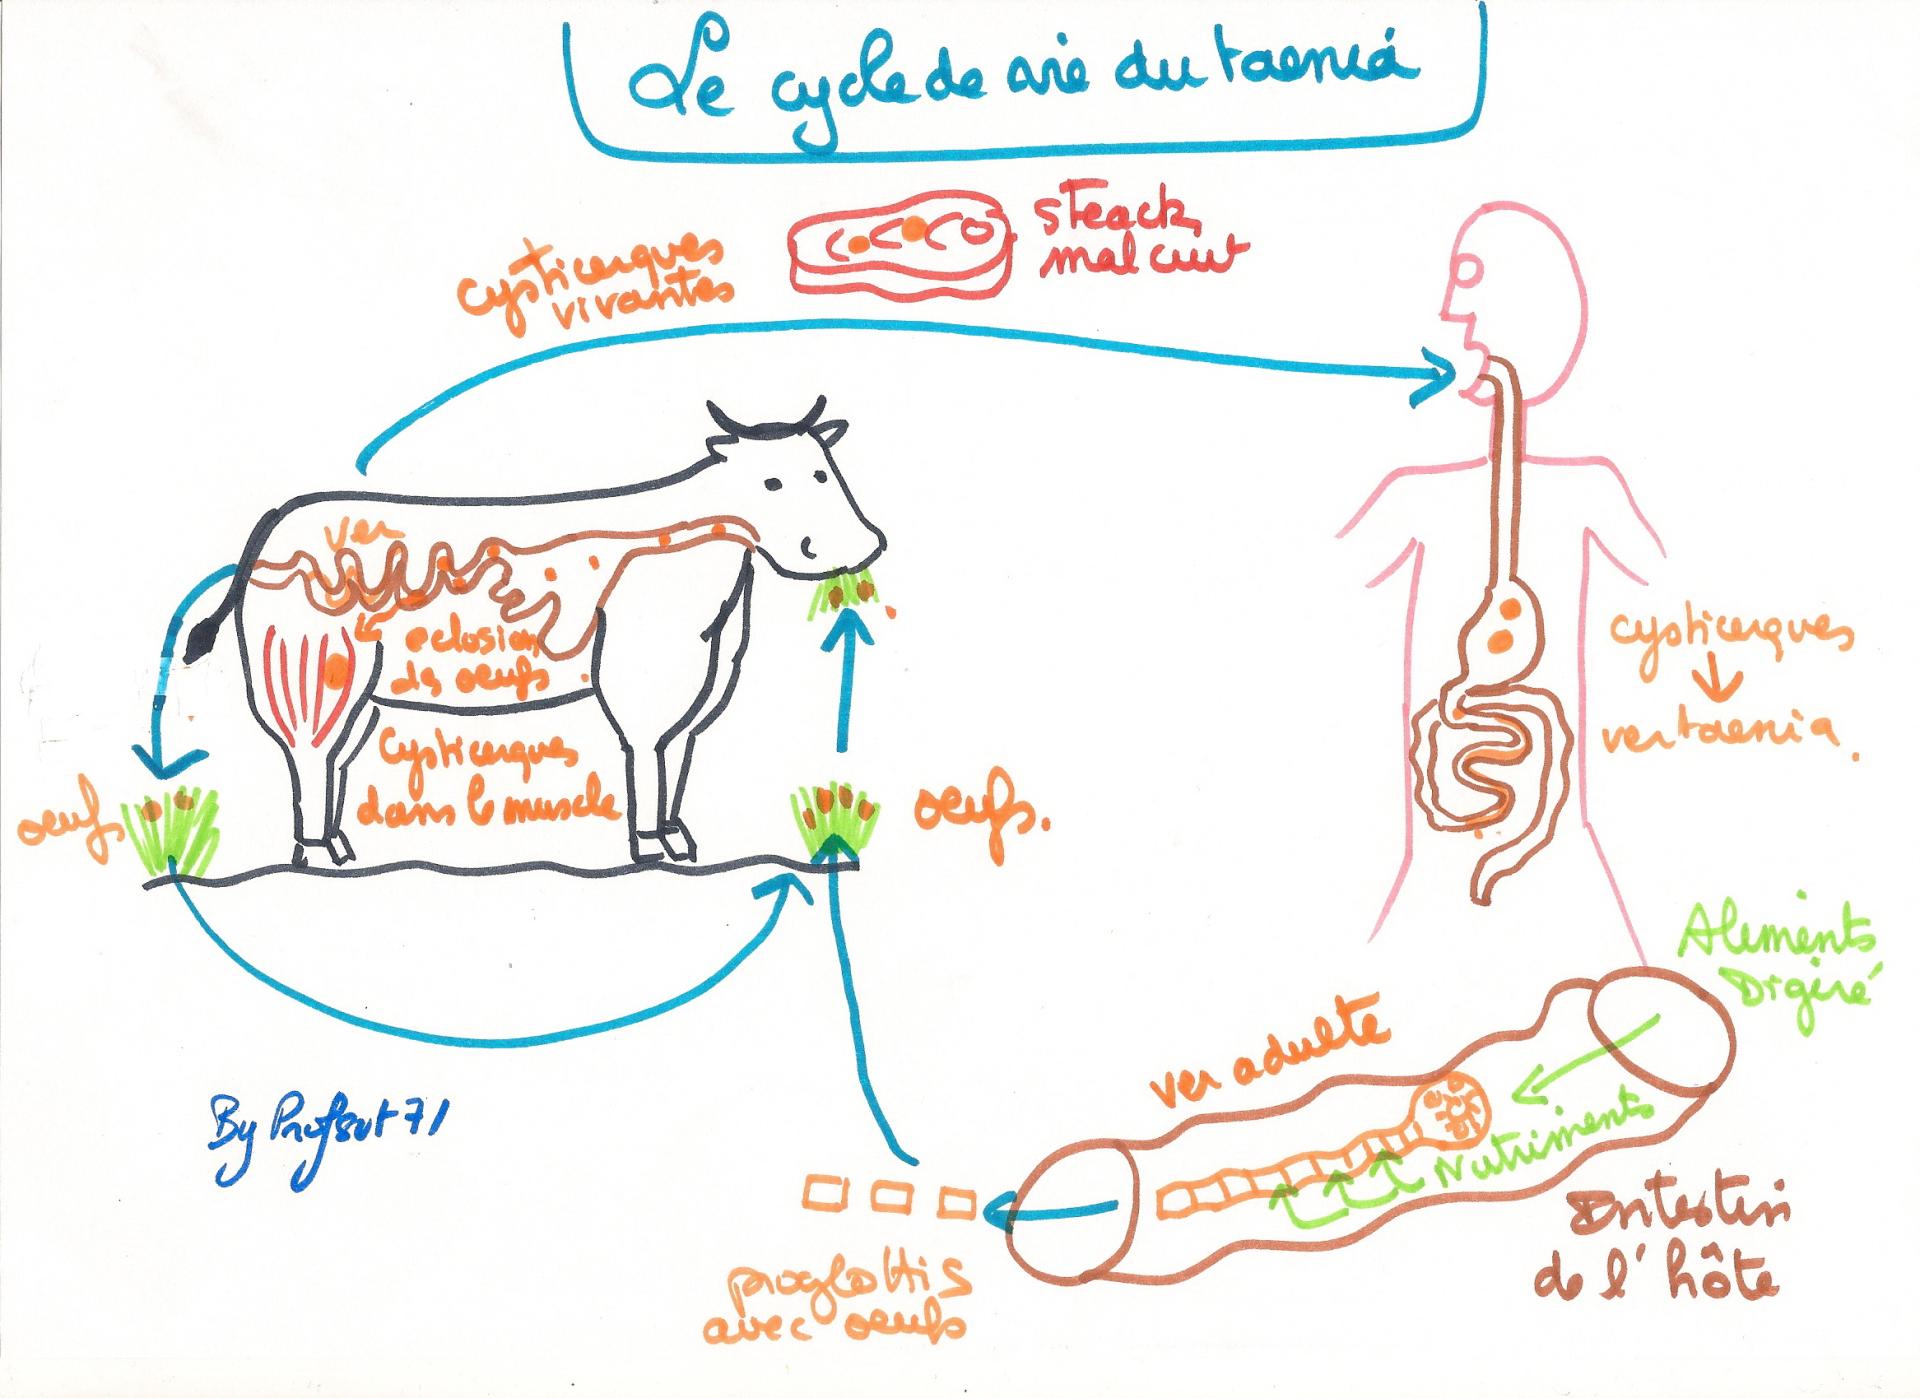 Le cycle de vie du taenia
steack
mal cuit
cysticerques
vivantes
ver
eclosion
des oeufs
Cysticerques
dans le muscle
oeufs
oeufs.
cysticerques
ver taenia.
Aliments
Digéré
ver adulte
Nutriments
Intestin
de l'hôte
proglottis
avec oeufs
By Profsvt 71